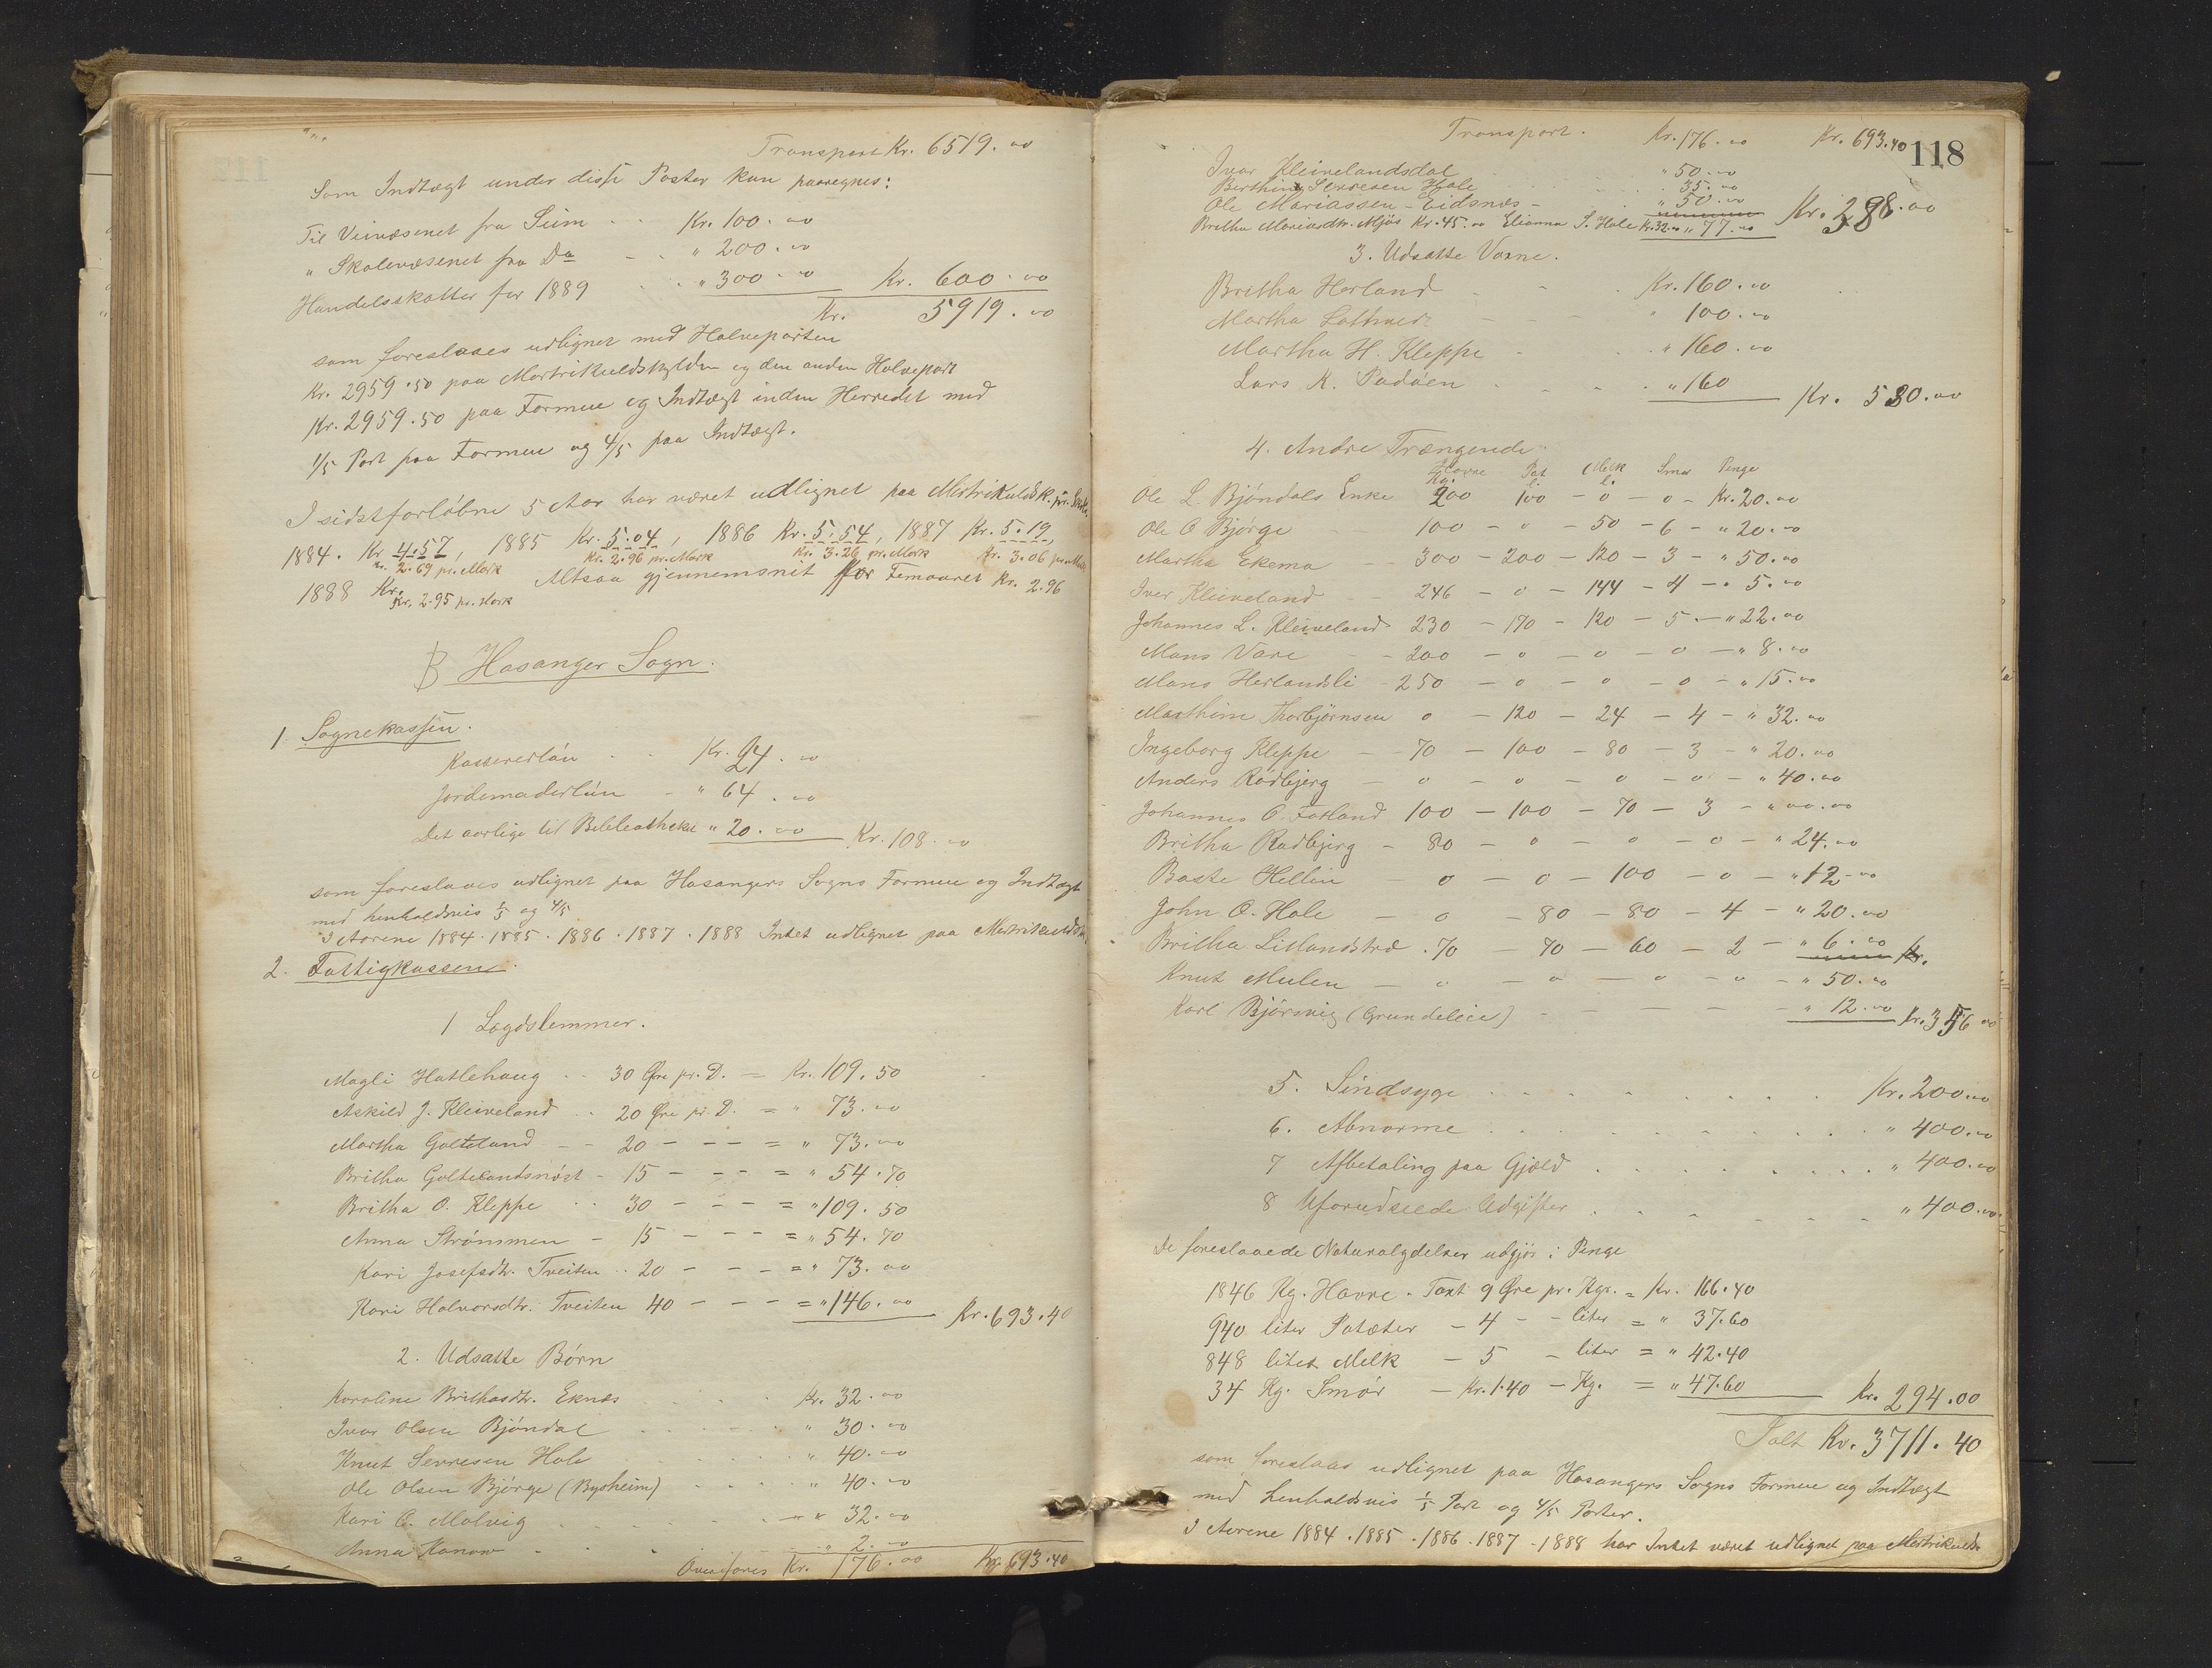 Transport Kr. 6519.00
Som Indtægt under disse Poster kan paaregnes:
Til Veivæsenet fra Seim Kr. 100.00
" Skolevæsenet fra Do " 200.00
Handelsskatter for 1889 " 300.00 Kr. 600.00
Kr. 5919.00
som foreslaaes udlignet med Halveparten
Kr. 2959.50 paa Matrikulskylden og den anden Halvepart
Kr. 2959.50 paa Formue og Indtægt inden Herredet med
1/5 Part paa Formue og 4/5 paa Indtægt.
I sidstforløbne 5 Aar har været udlignet paa Matrikulsk. pr.
1884. Kr. 4.57, 1885 Kr. 5.04, 1886 Kr. 5.54, 1887 Kr. 5.19,
Kr. 2.69 pr. Mark Kr. 2.96 pr. Mark Kr. 3.26 pr. Mark Kr. 3.06 pr. Mark
1888 Kr. Altsaa gjennemsnit for Femaaret Kr. 2.96
Kr. 2.95 pr. Mark
B Hosanger Sogn.
1. Sognekassen.
Kassererløn Kr. 24.00
Jordemoderløn " 64.00
Det aarlige til Bibliotheket " 20.00 Kr. 108.00
som foreslaaes udlignet paa Hosangers Sogns Formue og Indtægt
med henholdsvis 1/5 og 4/5
I Aarene 1884. 1885. 1886. 1887. 1888 Intet udlignet paa
2. Fattigkassen.
1 Lægdslemmer.
Magli Hatlehaug 30 Øre pr. D. = Kr. 109.50
Askild J. Kleiveland 20 Øre pr. D. = " 73.00
Martha Golteland 20 - - - = " 73.00
Britha Goltelandsnøst 15 - - - = " 54.70
Britha O. Kleppe 30 - - - = " 109.50
Anna Strømmen 15 - - - = " 54.70
Kari Josefsdtr. Tveiten 20 - - - = " 73.00
Kari Halvorsdtr. Tveiten 40 - - - = " 146.00 Kr. 693.40
2. Udsatte Børn
Karoline Brithasdtr. Eknæs Kr. 32.00
Ivar Olsen Bjøndal " 30.00
Knut Sevresen Hole " 40.00
Ole Olsen Bjørge (Bysheim) " 40.00
Kari O. Molvig " 32.00
Anna Kanow " 2.00
Overføres Kr. 176.00 Kr. 693.40
118
Transport. Kr. 176.00 Kr. 693.40
Ivar Kleivelandsdal " 50.00
Berthin Sevresen Hole " 35.00
Ole Mariassen Eidsnæs " 50.00
Britha Mariusdtr. Mjøs Kr. 45.00 Elianna S. Hole Kr. 32.00 " 77.00 Kr. 388.00
3. Udsatte Voxne.
Britha Herland Kr. 160.00
Martha " 100.00
Martha H. Kleppe " 160.00
Lars K. Padøen " 160 Kr. 580.00
4. Andre Trængende
Havre Pot Melk Smør Penge
Kg. l. l.
Ole L. Bjøndals Enke 200 100 - 0 - 0 - Kr. 20.00
Ole O Bjørge 100 - 0 - 50 - 6 - " 20.00
Martha Ekema 300 - 200 - 120 - 3 - " 50.00
Iver Kleiveland 246 - 0 - 144 - 4 - " 5.00
Johannes L. Kleiveland 230 - 170 - 120 - 5 - " 22.00
Mons Vare 200 - 0 - 0 - 0 - " 8.00
Mons Herlandsli 250 - 0 - 0 - 0 - " 15.00
Marthine Thorbjørnsen 0 - 120 - 24 - 4 - " 32.00
Ingeborg Kleppe 70 - 100 - 80 - 3 - " 20.00
Anders Rødbjerg - 0 - 0 - 0 - 0 - " 40.00
Johannes O. Fatland 100 - 100 - 70 - 3 - " 00.00
Britha Rødbjerg - 80 - 0 - 0 - 0 - " 24.00
Baste Hellin - 0 - 0 - 100 - 0 - " 12.00
John O. Hole - 0 - 80 - 80 - 4 - " 20.00
Britha Lillandstræ 70 - 70 - 60 - 2 - " 6.00 Kr.
Knut Mulen - 0 - 0 - 0 - 0 - " 50.00
Karl Bjørsvig (Grundeleie) " 12.00 Kr. 356.00
5. Sindsyge Kr. 200.00
6. Abnorme " 400.00
7 Afbetaling paa Gjæld " 400.00
8 Uforudseede Udgifter " 400.00
De foreslaaede Naturalydelser udgjør i Penge
1846 Kg. Havre. Taxt 9 Øre pr. Kgr. = Kr. 166.40
940 liter Potæter - 4 - - liter = " 37.60
848 liter Melk - 5 - liter = " 42.40
34 Kg. Smør - Kr. 1.40 - Kg. = " 47.60 Kr. 294.00
Ialt Kr. 3711.40
som foreslaas udlignet paa Hosangers Sogns Formue og Indtægt
med henholdsvis 1/5 Part og 4/5 Parter.
I Aarene 1884. 1885. 1886. 1887. 1888 har Intet været udlignet paa